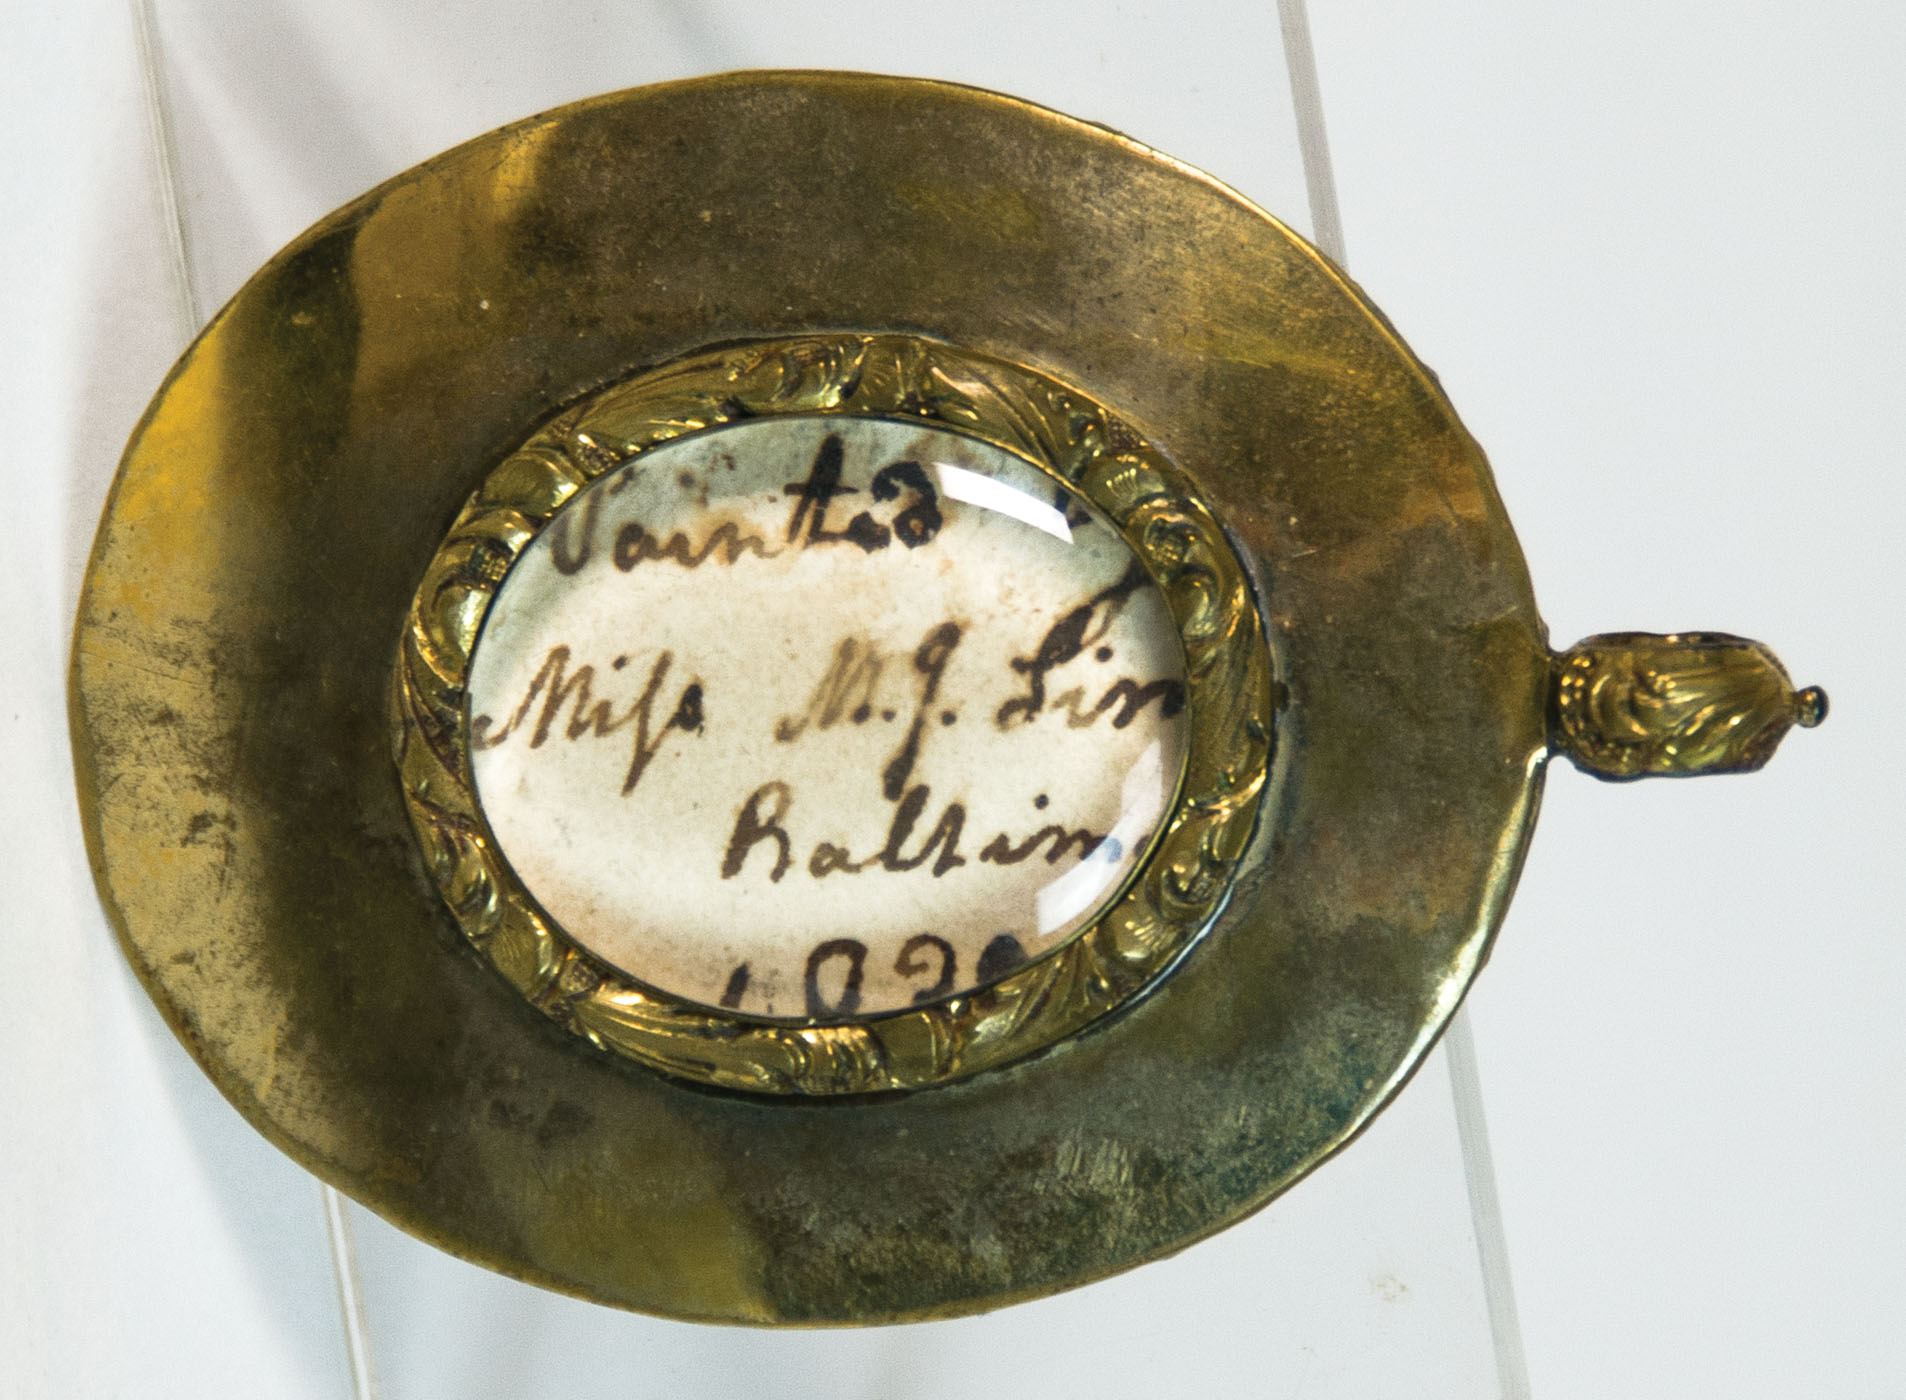 Painted
Miss M. J. Sim
Baltim
182